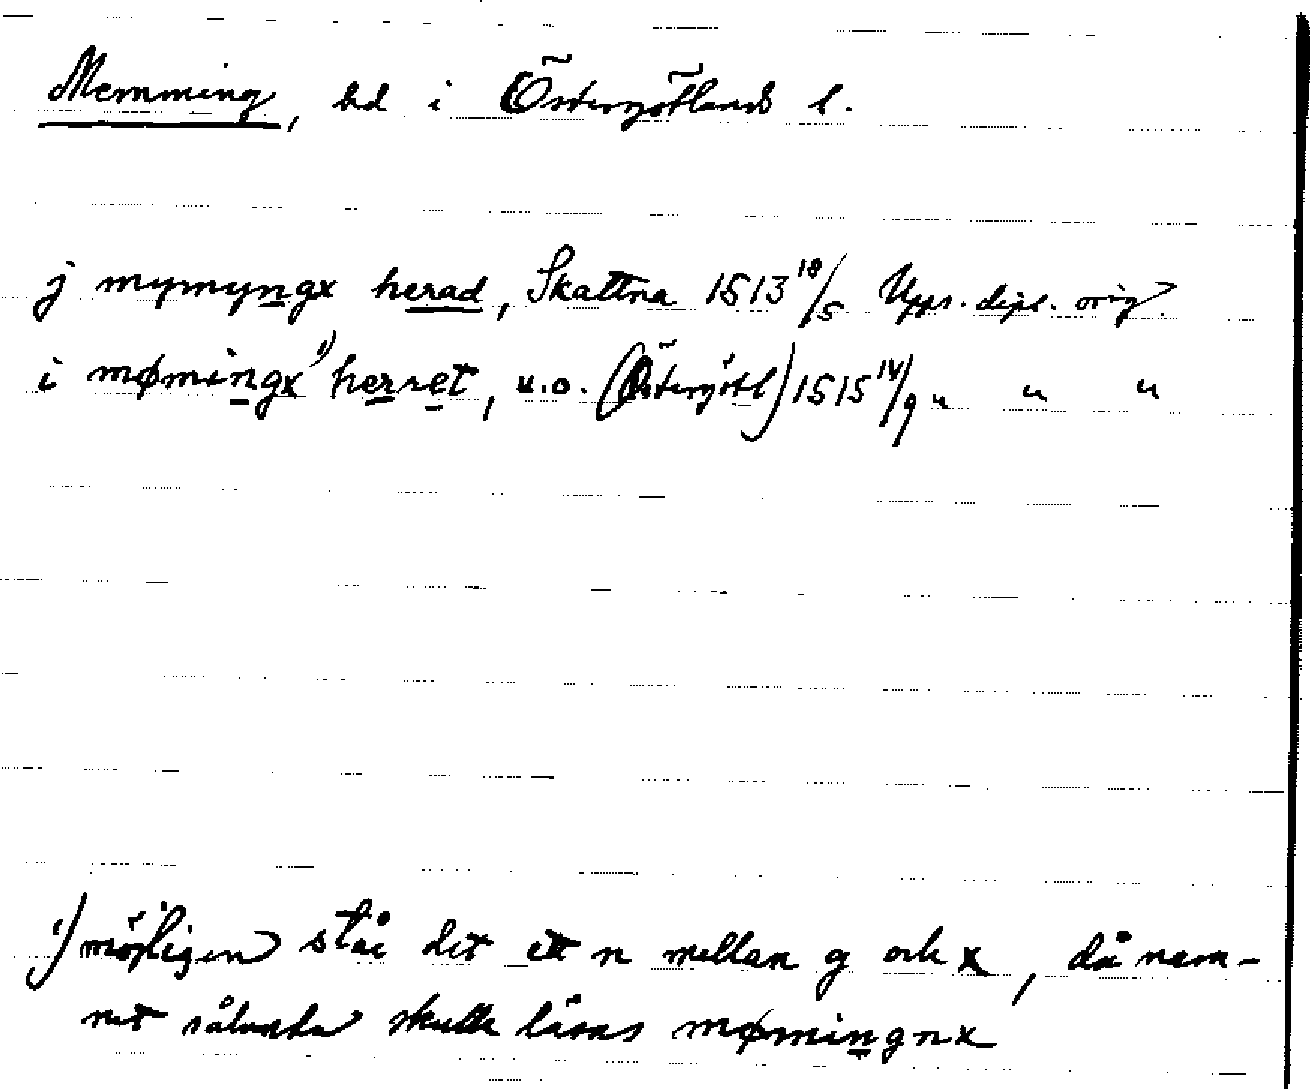 Memming, hd i Östergötlands l.
j mymyngx herad, Skattna 1513 18/5 Upps. dipl. orig.
i mømingx 1) herret, u.o. (Östergötl) 1515 14/9 " " "
1) möjligen står det ett n mellan g och x, då nam-
net sålunda skulle läsas mømingnx